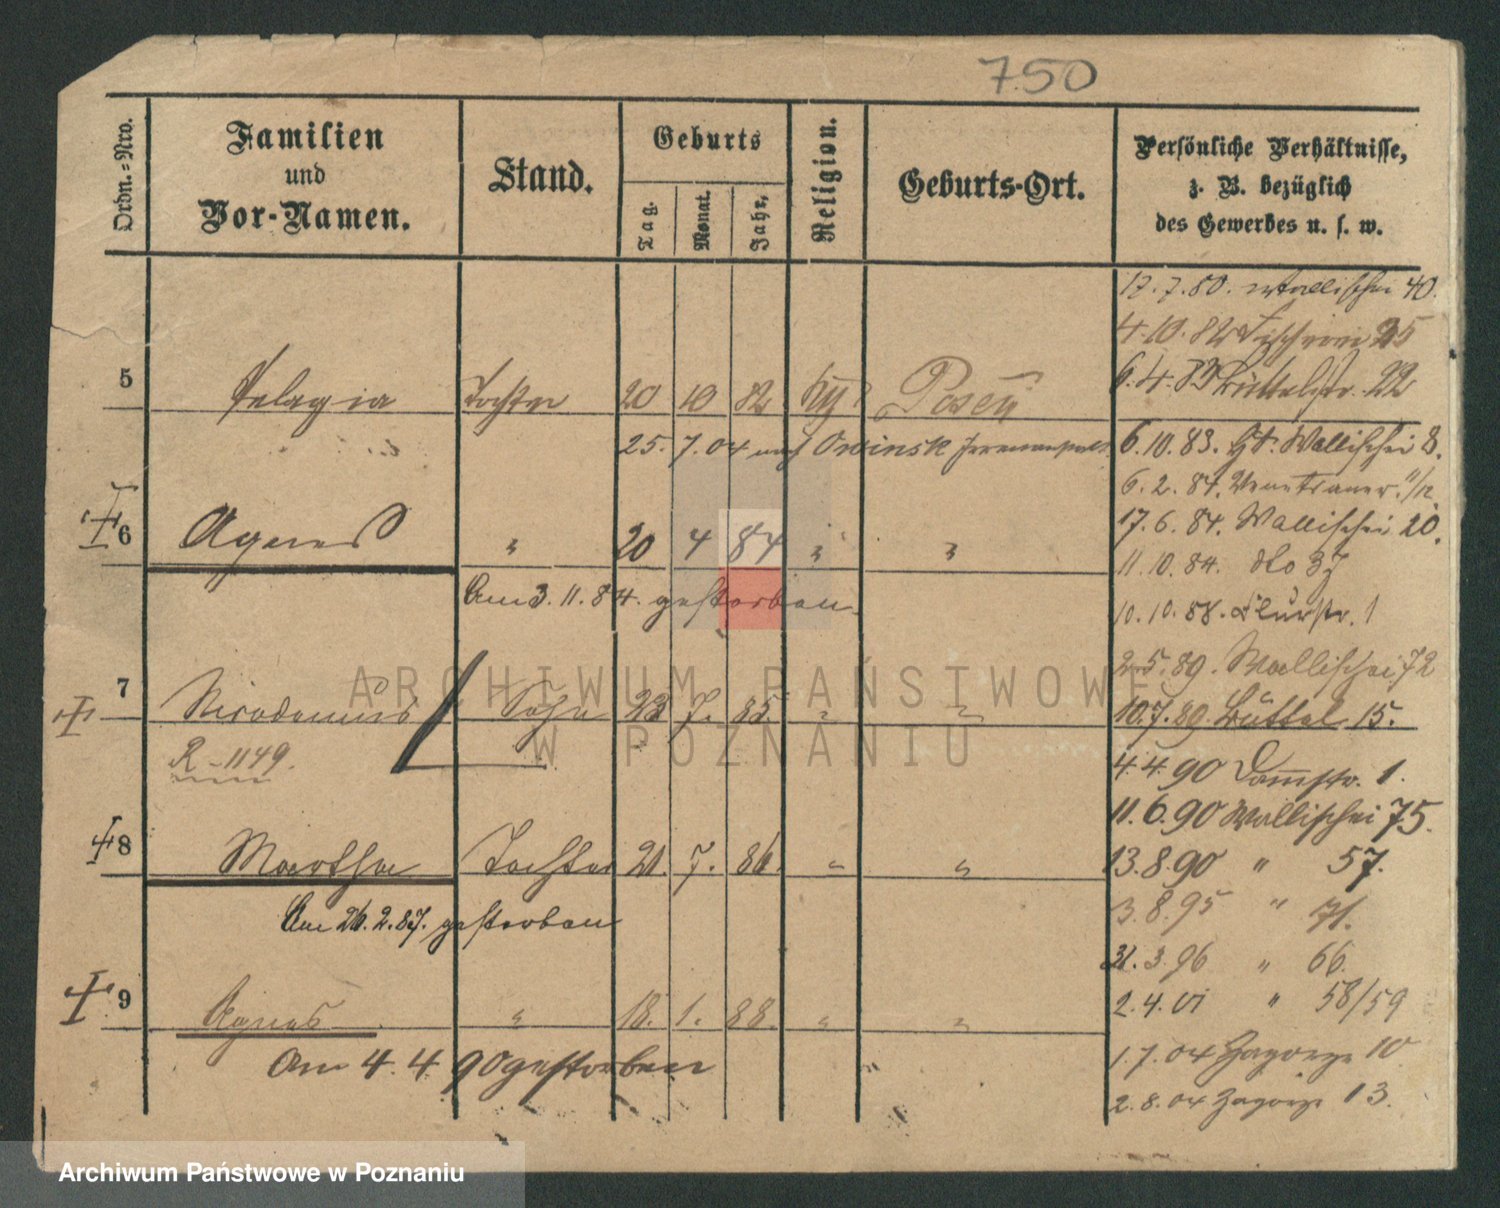 750
Ordn.=Nro.
Familien
und
Vor-Namen.
Stand.
Geburts
Tag.
Monat.
Jahr.
Religion.
Geburts-Ort.
Persönliche Verhältnisse,
z. B. bezüglich
des Gewerbes u. s. w.
17.7.80. Wallischei 40.
4.10.82 Fischerei 25
6.4.83 Büttelstr. 22
5 Pelagia Tochter 20 10 82 Posen
25. 7. 04 nach Owinsk
6.10.83. Wallischei 8.
6.2.84. Venetianer. 11/12
17.6.84. Wallischei 20.
6 Agnes " 20 4 84 " "
11.10.84. dto 37
Am 3. 11. 84. gestorben.
10.10.88. Flurstr. 1
2.5.89. Wallischei 72
7 Nicodemus Sohn 23 7. 85. " "
10.7.89 Büttel 15.
R-1149.
4.4.90 Dammstr. 1.
11.6.90 Wallischei 75.
8 Martha Tochter 21. 7. 86. " "
13.8.90 " 57.
Am 26. 2. 87. gestorben
3.8.95 " 71.
31.3.96 " 66.
9 Agnes " 18. 1. 88. " "
2.4.01 " 58/59
Am 4. 4. 90 gestorben
1.7.04 Zagorze 10
2.8.04 Zagorze 13.
ARCHIWUM PAŃSTWOWE
W POZNANIU
Archiwum Państwowe w Poznaniu